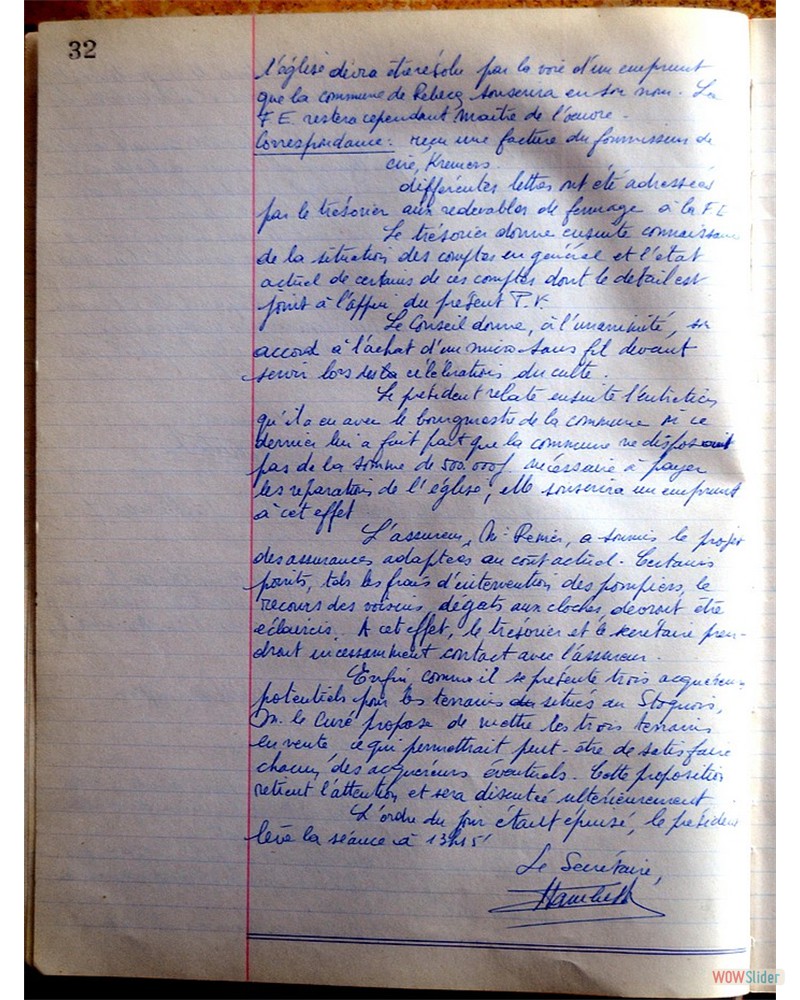 32
l'église devra être résolu par la voie d'un emprunt
que la commune de Rebecq souscrira en son nom. La
F.E. restera cependant maître de l'œuvre.
Correspondance: reçu une facture du fournisseur de
cire, Kremers.
différentes lettres ont été adressées
par le trésorier aux redevables de fermage à la F.E.
Le trésorier donne ensuite connaissance
de la situation des comptes en général et l'état
actuel de certains de ces comptes dont le détail est
joint à l'appui du présent P.V.
Le Conseil donne, à l'unanimité, son
accord à l'achat d'un micro sans fil devant
servir lors des célébrations du culte.
Le président relate ensuite l'entretien
qu'il a eu avec le bourgmestre de la commune
dernier lui a fait part que la commune ne disposait
pas de la somme de 500.000f nécessaire à payer
les réparations de l'église, elle souscrira un emprunt
à cet effet.
L'assureur, Mr Renier, a soumis le projet
des assurances adaptées au coût actuel. Certains
points, tels les frais d'intervention des pompiers, le
recours des voisins, dégats aux cloches, devront être
éclaircis. A cet effet, le trésorier et le secrétaire pren-
dront incessamment contact avec l'assureur.
Enfin comme il se présente trois acquéreurs
potentiels pour les terrains situés au Stoquois,
M. le Curé propose de mettre les trois terrains
en vente ce qui permettrait peut-être de satisfaire
chacun des acquéreurs éventuels. Cette proposition
retient l'attention et sera discutée ultérieurement.
L'ordre du jour étant épuisé, le président
lève la séance à 13h15'
Le Secrétaire,
WOWSlider